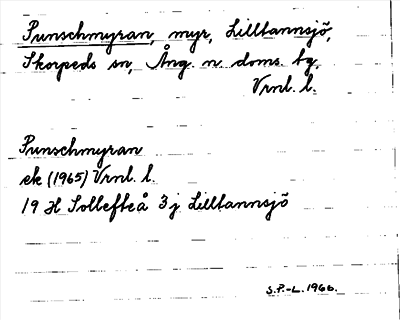 Punschmyran, myr, Lilltannsjö,
Skorpeds sn, Ång. n. doms. tg.
Vrnl. l.
Punschmyran
ek (1965) Vrnl. l.
19 H Sollefteå 3 j Lilltannsjö
S.P.-L. 1966.